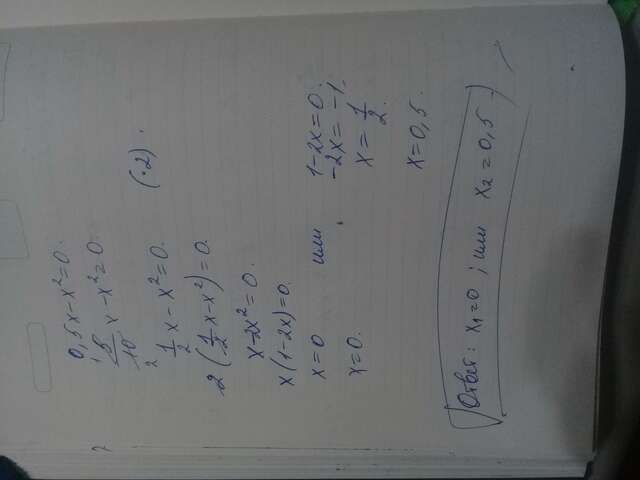 0,5x-x²=0.
5/10 x-x²=0.
1/2 x-x²=0. (·2).
2(1/2 x-x²)=0.
x-2x²=0.
x(1-2x)=0.
x=0 или 1-2x=0.
x=0. -2x=-1.
x=1/2.
x=0,5.
Ответ: x₁=0; или x₂=0,5